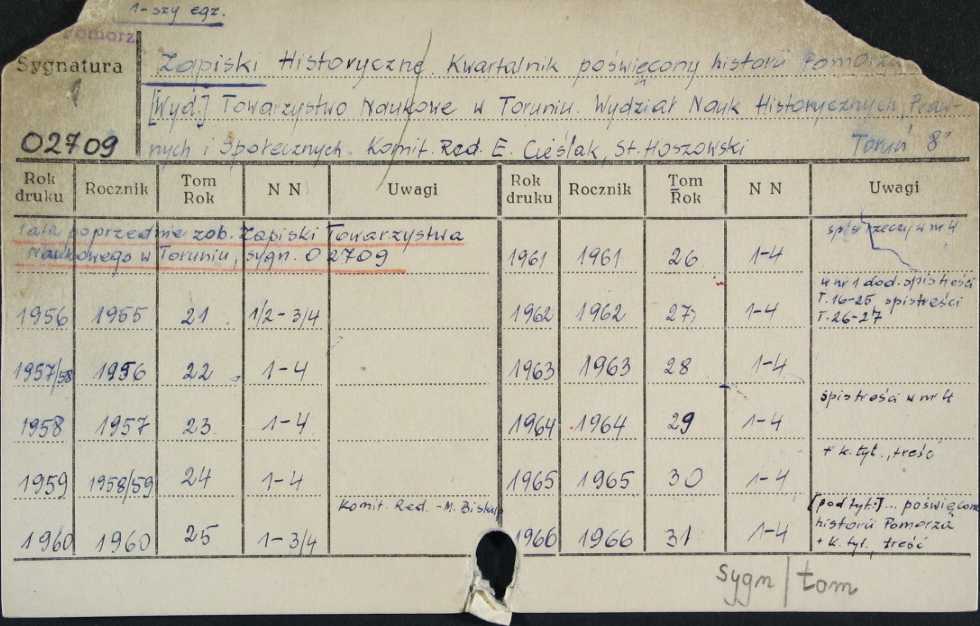 1-szy egz.
Pomorz
Sygnatura
02709
Zapiski Historyczne. Kwartalnik poświęcony historii Pomorza
[Wyd.] Towarzystwo Naukowe w Toruniu. Wydział Nauk Historycznych, Praw-
nych i Społecznych. Komit. Red. E. Cieślak, St. Hoszowski Toruń 8°
Rok druku Rocznik Tom Rok N N Uwagi Rok druku Rocznik Tom Rok N N Uwagi
Lata poprzednie zob. Zapiski Towarzystwa
Naukowego w Toruniu, sygn. 02709
1961 1961 26 1-4 spis rzeczy w nr 4
1956 1955 21 1/2-3/4
1962 1962 27 1-4 w nr 1 dod. spis treści
T. 16-25 spis treści
T. 26-27
1957/58 1956 22 1-4
1963 1963 28 1-4
1958 1957 23 1-4
1964 1964 29 1-4 spis treści w nr 4
1959 1958/59 24 1-4
1965 1965 30 1-4 + k. tyt., treść
1960 1960 25 1-3/4 Komit. Red. - M. Biskup
1966 1966 31 1-4 [pod tyt.:] ... poświęcone
historii Pomorza
+ k. tyt., treść
sygn/tom